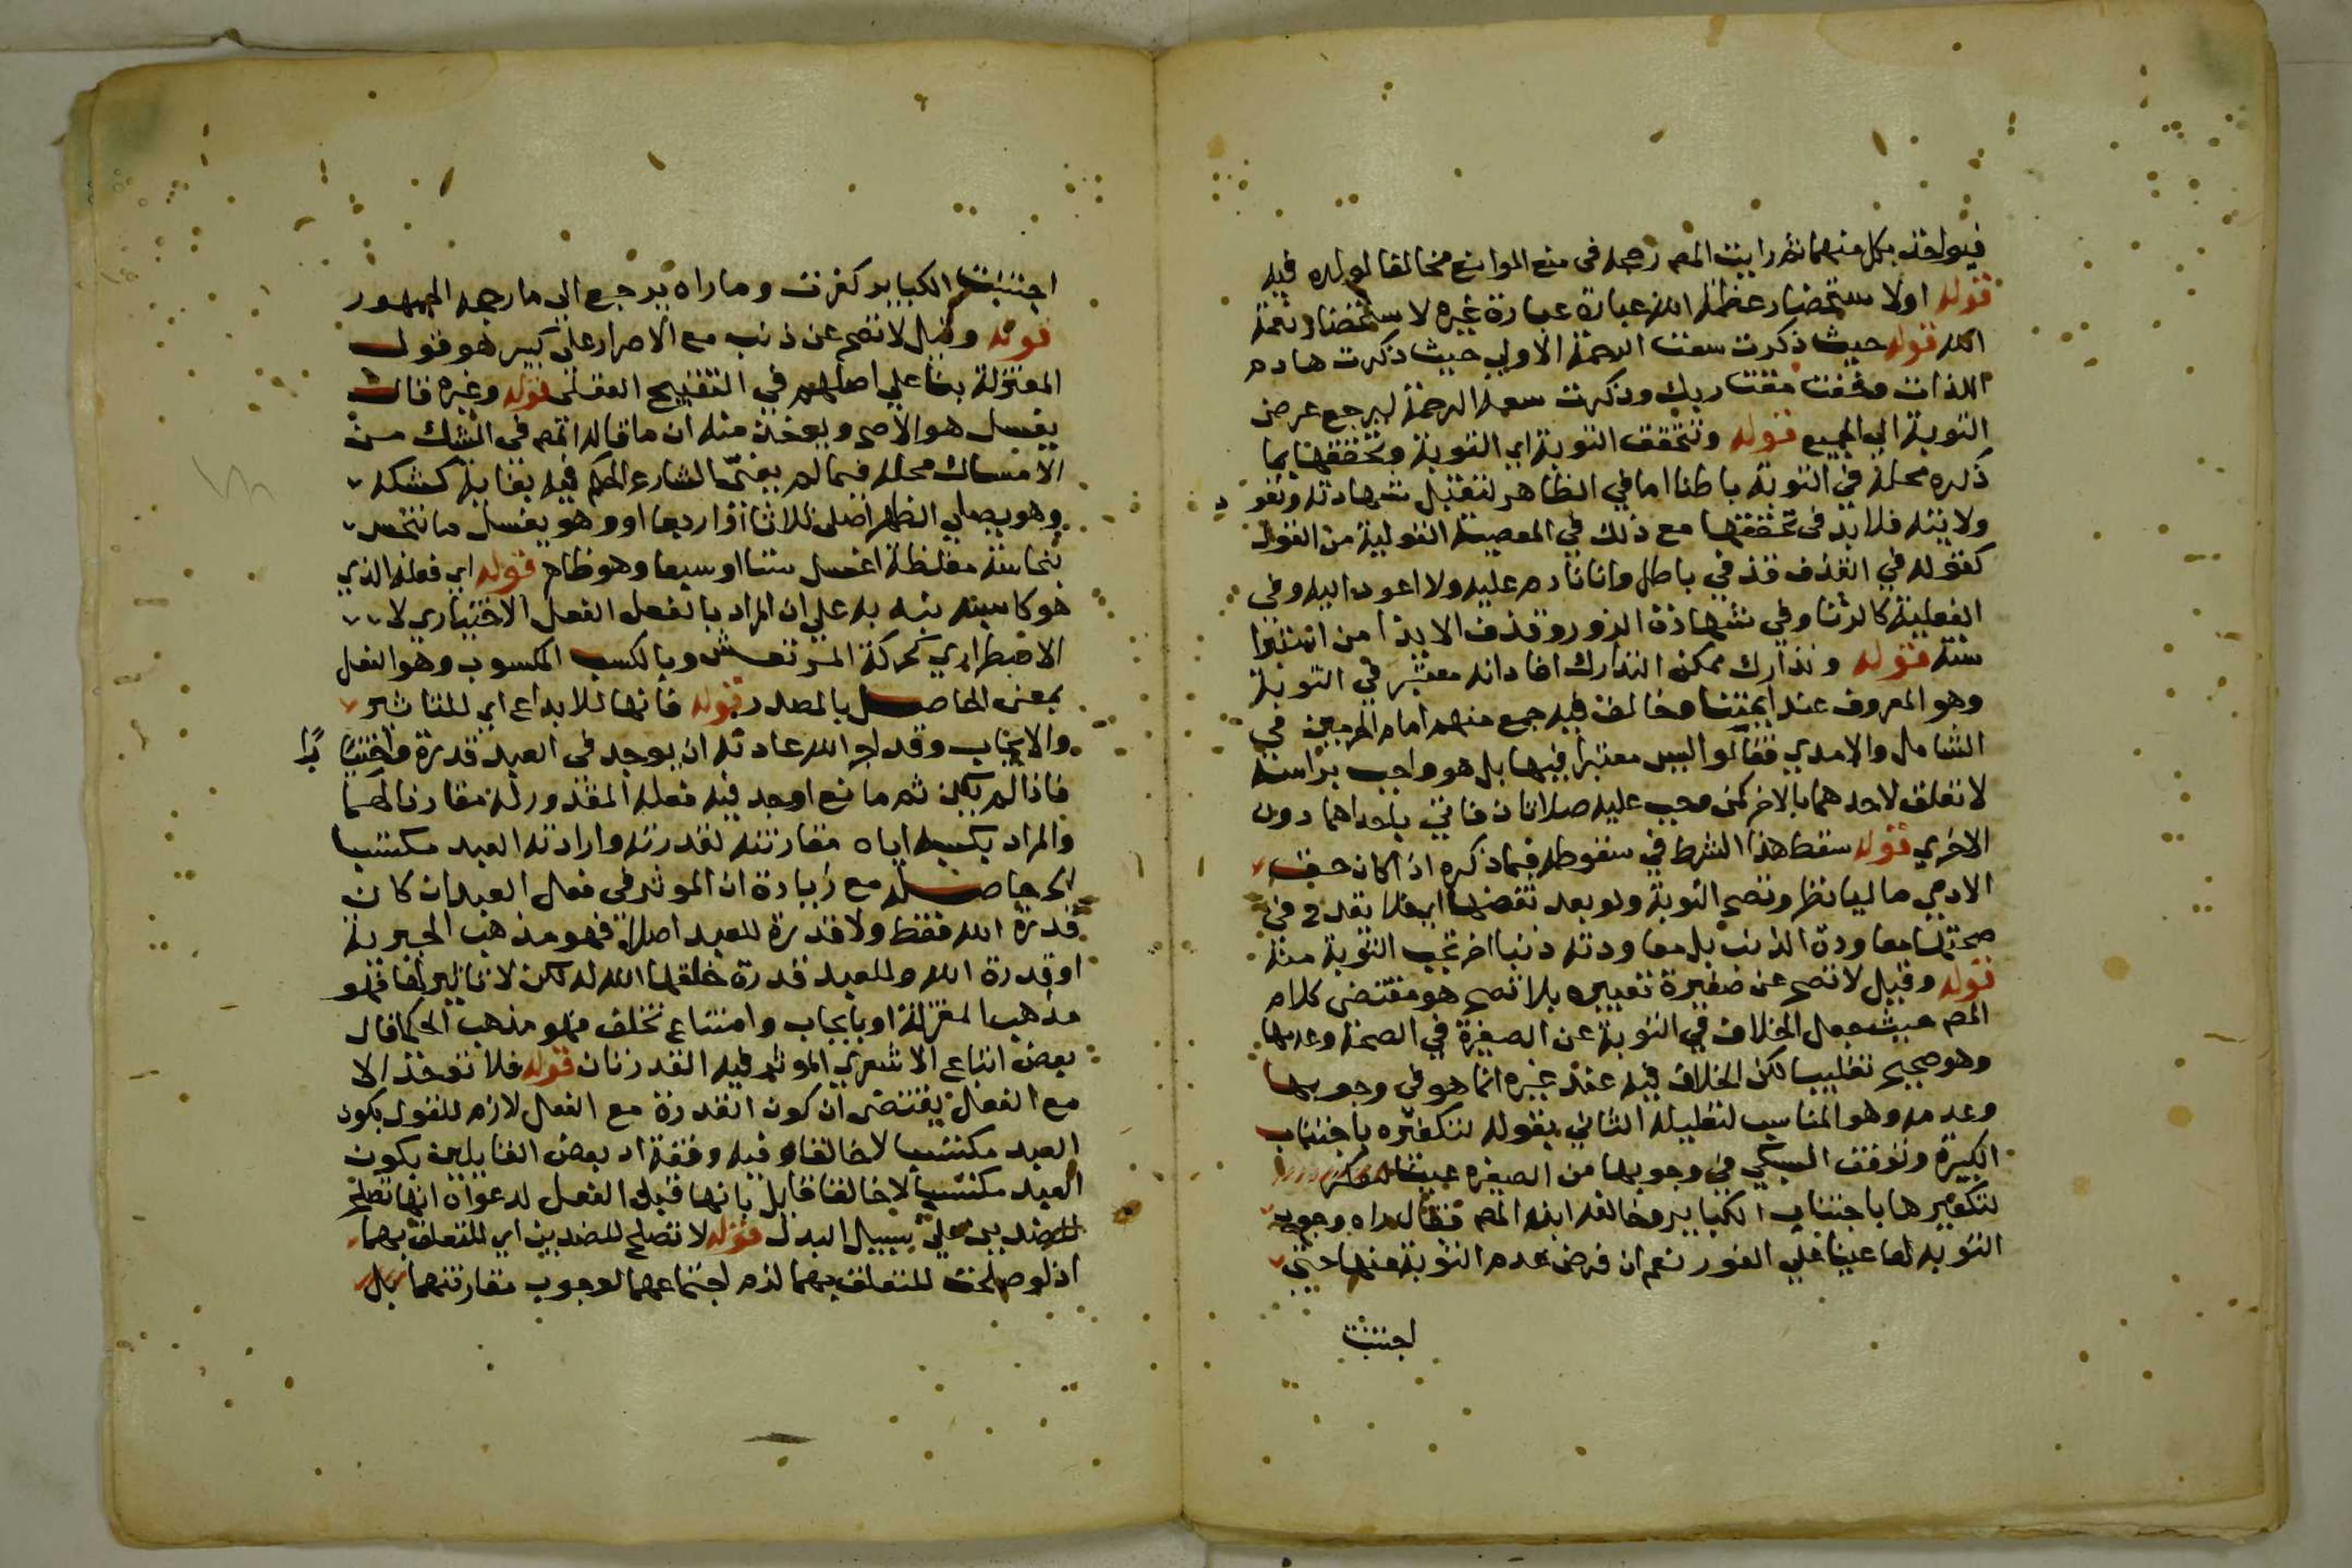 فيواخذ بكل منهما ثم رايت المص رجحه في منع الموانع مخالفا لولده فيه
قوله اولا ستحضار عظمة الله عبارة غيره لا ستحضار نعمة
الله قوله حيث ذكرت سعت الرحمة الاولي حيث ذكرت هادم
اللذات وخفت مقت ربك وذكرت سعة الرحمة ليرجع عرض
التوبة الي الجميع قوله وتتحقق التوبة اي التوبة وتحققها بما
ذكره محله في التوبة باطنا اما في الظاهر لتقبل شهادته وتعود
ولايته فلا بد في تحققها مع ذلك في المعصية القولية من القول
كقوله في القذف قذفي باطل وانا نادم عليه ولا اعود اليه وفي
الفعلية كالزنا وفي شهادة الزور وقذف الايذا من استبرا
سنة قوله وتدارك ممكن التدارك افاد انه معتبر في التوبة
وهو المعروف عند ايمتنا وخالف فيه جمع منهم امام الحرمين في
الشامل والامدي فقالو اليس معتبرا فيها بل هو واجب براسه
لا تعلق لاحدهما بالاخر كمن وجب عليه صلاتان فاتي باحداهما دون
الاخري قوله سقط هذا الشرط في سقوطه فيما ذكره اذا كان حق
الادمي ماليا نظر وتصح التوبة ولو بعد نقضها اي فلا يقدح في
صحتها معاودة الذنب بل معاودته ذنبا اخر تجب التوبة منه
قوله وقيل لا تصح عن صغيرة تعبيره بلا تصح هو مقتضى كلام
المص حيث جعل الخلاف في التوبة عن الصغيرة في الصحة وعدمها
وهو صحيح تغليبا لكن الخلاف فيه عند غيره انما هو في وجوبها
وعدمه وهو المناسب لتعليله الثاني بقوله لتكفيره باجتناب
الكبيرة وتوقف السبكي في وجوبها من الصغيرة عينا
لتكفيرها باجتناب الكباير وخالفه ابنه المص فقال اراه وجوب
التوبة لها عينا علي الفور نعم ان فرض عدم التوبة عنها حتي
اجتنبت
اجتنبت الكباير كفرت وما راه يرجع الي ما رجحه الجمهور
قوله وقيل لا تصح عن ذنب مع الاصرار علي كبير هو قول
المعتزلة بنا علي اصلهم في التقبيح العقلي قوله وغيره قال
يغسل هو الاصح ويوخذ منه ان ما قاله المص في الشك من
الامساك محله فيما لم يغي الشارع الحكم فيه بغاية كشكه
وهو يصلي الظهر اصلي ثلاثا او اربعا او وهو يغسل ما تنجس
بنجاسة مغلظة اغسل ستا او سبعا وهو ظاهر قوله اي فعله الذي
هو كاسبه نبه به علي ان المراد بالفعل الفعل الاختياري لا
الاضطراري كحركة المرتعش وبالكسب المكسوب وهو الفعل
بمعنى الحاصل بالمصدر قوله فانها للابداع اي للتاثير
والايجاب وقد اجري الله عادته ان يوجد في العبد قدرة واختيارا
فاذا لم يكن ثم مانع اوجد فيه فعله المقدور له مقارنا لهما
والمراد بكسبه اياه مقارنته لقدرته وارادته العبد مكتسبا
الخ حاصله مع زيادة ان الموثر في فعل العبد ان كان
قدرة الله فقط ولا قدرة للعبد اصلا فهو مذهب الجبرية
او قدرة الله وللعبد قدرة خلقها الله له لكن لا تاثير لها فهو
مذهب المعتزلة او بايجاب وامتناع تخلف فهو مذهب الحكما قال
بعض اتباع الاشعري الموثر فيه القدرتان قوله فلا توخذ الا
مع الفعل يقتضى ان كون القدرة مع الفعل لازم للقول بكون
العبد مكتسبا لا خالقا وفيه وقفة اد بعض القايلين بكون
العبد مكتسبا لا خالقا قايل بانها قبل الفعل لدعواه انها تصلح
للضدين علي سبيل البدل قوله لا تصلح للضدين اي للتعلق بهما
اذ لو صلحت للتعلق بهما لزم اجتماعهما لوجوب مقارنتهما بل